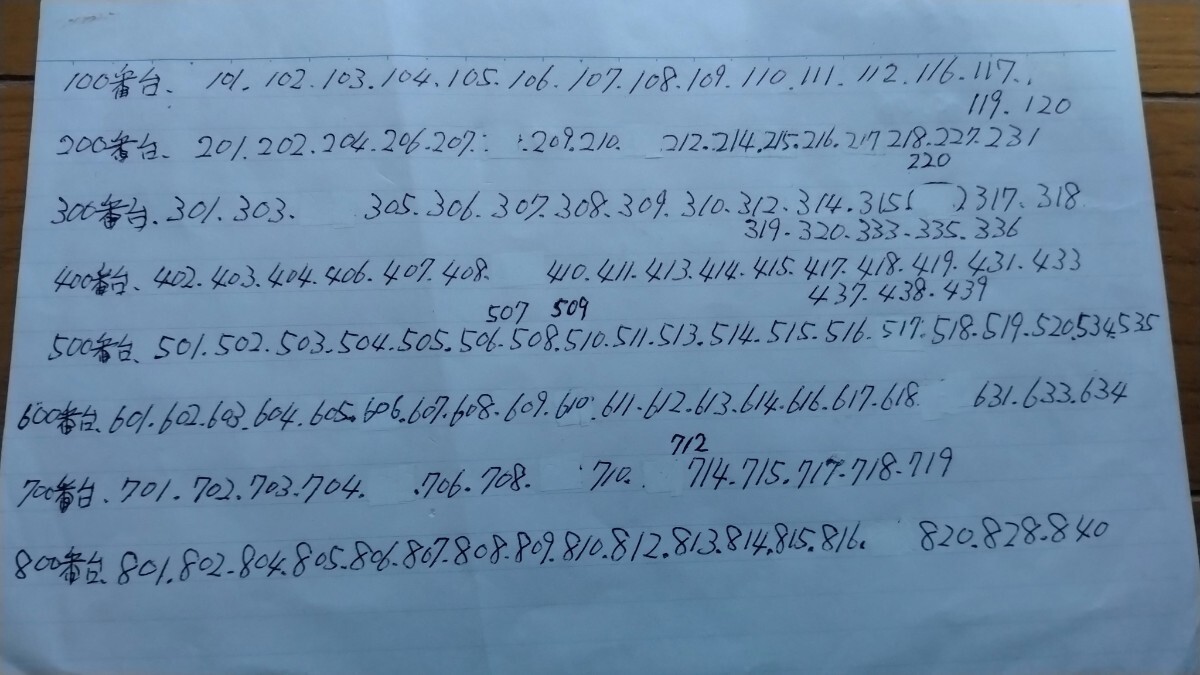 100番台、101.102.103.104.105.106.107.108.109.110.111.112.116.117.
119.120
200番台、201.202.204.206.207.209.210.212.214.215.216.217 218.227.231
220
300番台.301.303.305.306.307.308.309.310.312.314.315.317.318
319.320.333.335.336
400番台.402.403.404.406.407.408.410.411.413.414.415.417.418.419.431.433
437.438.439
507 509
500番台、501.502.503.504.505.506.508.510.511.513.514.515.516.517.518.519.520.534.535
600番台、601.602.603.604.605.606.607.608.609.610.611.612.613.614.616.617.618 631.633.634
712
700番台、701.702.703.704. .706.708. 710. 714.715.717.718.719
800番台、801.802.804.805.806.807.808.809.810.812.813.814.815.816. 820.828.840